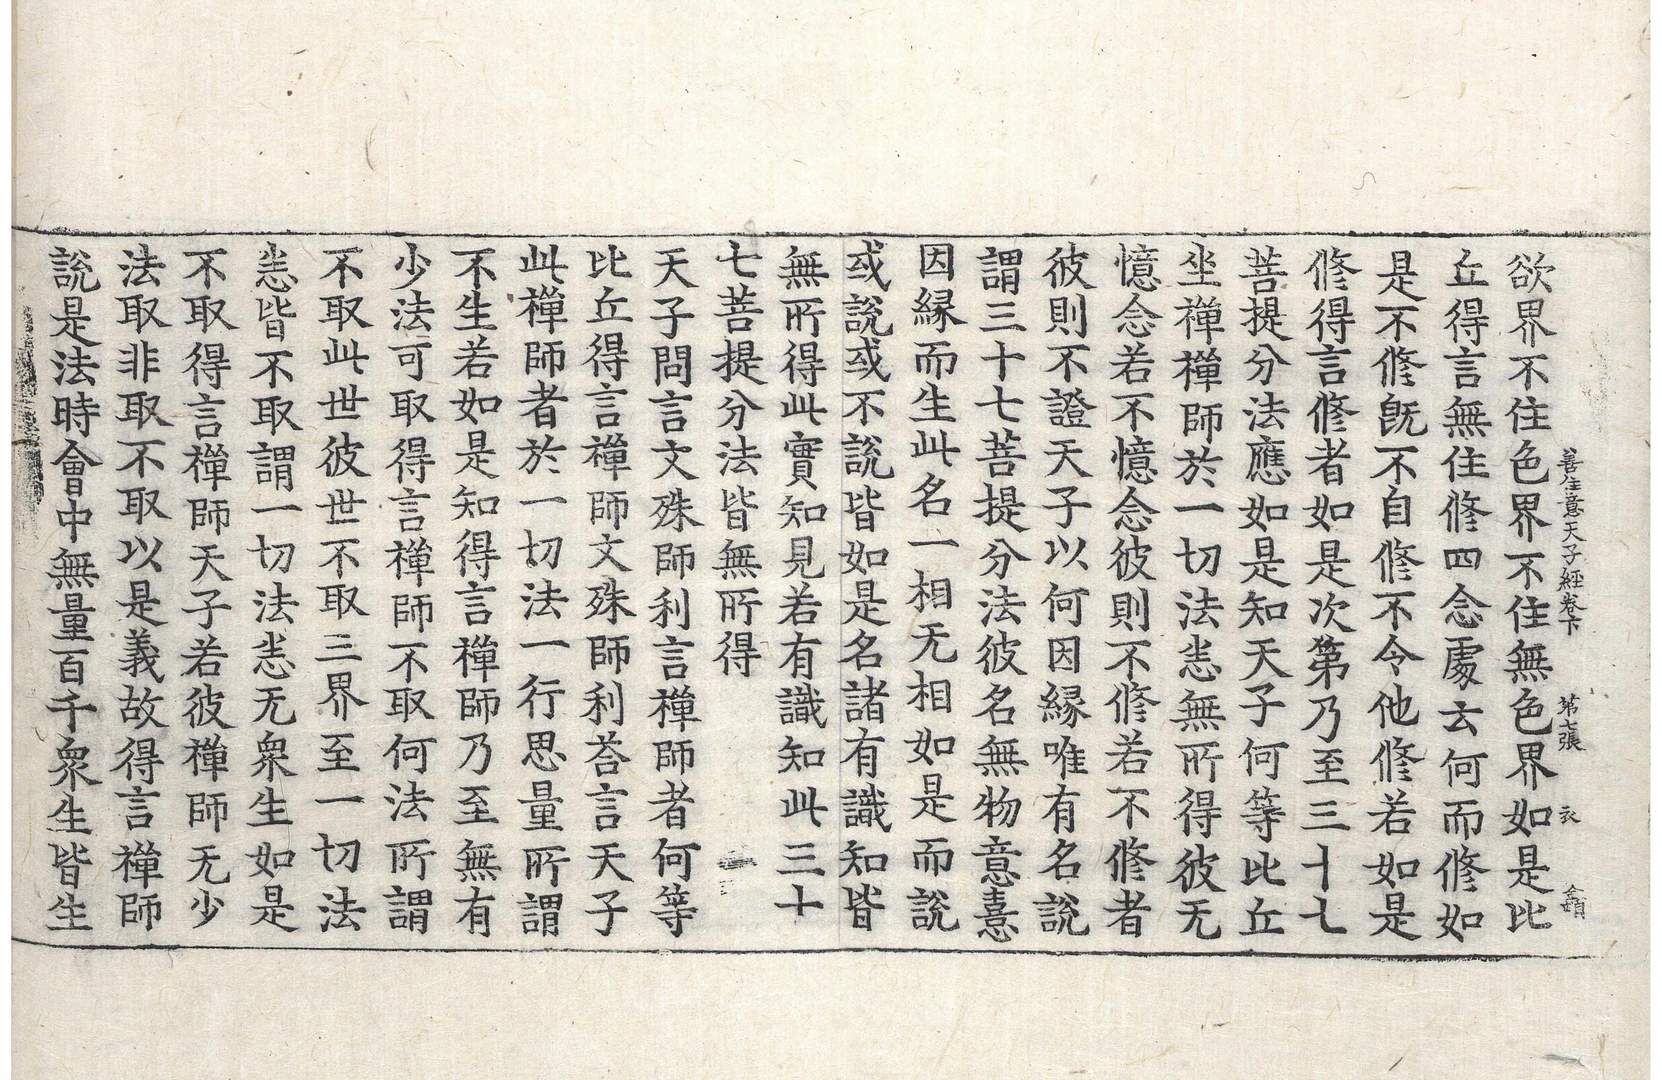 善住意天子經卷下 第七張 衣
欲界不住色界不住無色界如是比
丘得言無住修四念處云何而修如
是不修旣不自修不令他修若如是
修得言修者如是次第乃至三十七
菩提分法應如是知天子何等比丘
坐禪禪師於一切法恙無所得彼无
憶念若不憶念彼則不修若不修者
彼則不證天子以何因緣唯有名說
謂三十七菩提分法彼名無物意憙
因緣而生此名一相无相如是而說
或說或不說皆如是名諸有識知皆
無所得此實知見若有識知此三十
七菩提分法皆無所得
天子問言文殊師利言禪師者何等
比丘得言禪師文殊師利荅言天子
此禪師者於一切法一行思量所謂
不生若如是知得言禪師乃至無有
少法可取得言禪師不取何法所謂
不取此世彼世不取三界至一切法
恙皆不取謂一切法恙无衆生如是
不取得言禪師天子若彼禪師无少
法取非取不取以是義故得言禪師
說是法時會中無量百千衆生皆生